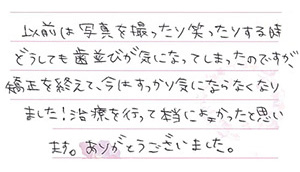 以前は写真を撮ったり笑ったりする時
どうしても歯並びが気になってしまったのですが、
矯正を終えて、今はすっかり気にならなくなり
ました！治療を行って本当によかったと思い
ます。ありがとうございました。